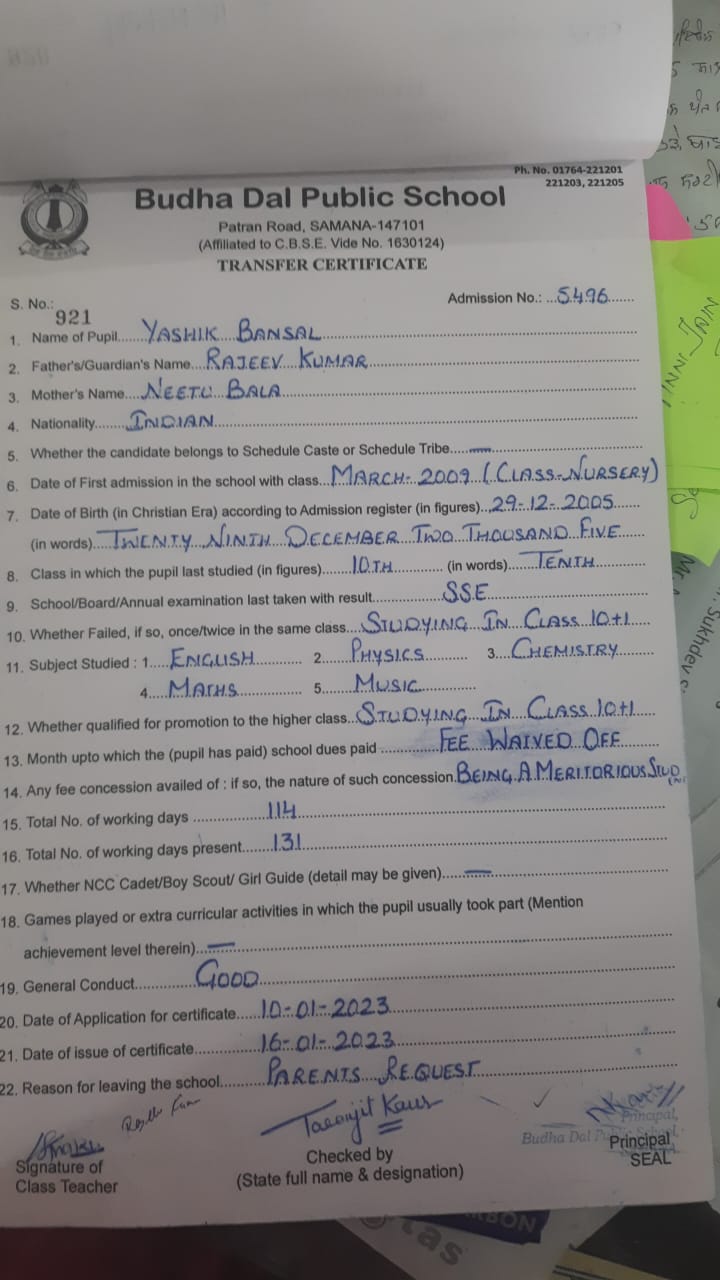 Ph. No. 01764-221201
221203, 221205
Budha Dal Public School
Patran Road, SAMANA-147101
(Affiliated to C.B.S.E. Vide No. 1630124)
TRANSFER CERTIFICATE
S. No.: 921
Admission No.: ...5496.......
1. Name of Pupil.......YASHIK BANSAL
2. Father's/Guardian's Name...RAJEEV KUMAR
3. Mother's Name....NEETU BALA
4. Nationality........INDIAN
5. Whether the candidate belongs to Schedule Caste or Schedule Tribe....—
6. Date of First admission in the school with class...MARCH-2009 (CLASS-NURSERY)
7. Date of Birth (in Christian Era) according to Admission register (in figures)..29-12-2005
(in words)....TWENTY NINTH DECEMBER TWO THOUSAND FIVE
8. Class in which the pupil last studied (in figures)......10TH......... (in words)....TENTH
9. School/Board/Annual examination last taken with result..........SSE
10. Whether Failed, if so, once/twice in the same class....STUDYING IN CLASS 10+1
11. Subject Studied : 1....ENGLISH......... 2....PHYSICS......... 3...CHEMISTRY
4....MATHS......... 5......MUSIC
12. Whether qualified for promotion to the higher class...STUDYING IN CLASS 10+1
13. Month upto which the (pupil has paid) school dues paid ..........FEE WAIVED OFF
14. Any fee concession availed of : if so, the nature of such concession.BEING A MERITORIOUS STUD
15. Total No. of working days .............114
16. Total No. of working days present.......131
17. Whether NCC Cadet/Boy Scout/ Girl Guide (detail may be given)....—
18. Games played or extra curricular activities in which the pupil usually took part (Mention
achievement level therein)...—
19. General Conduct............GOOD
20. Date of Application for certificate.....10-01-2023
21. Date of issue of certificate............16-01-2023
22. Reason for leaving the school.........PARENTS REQUEST
Taranjit Kaur
Principal,
Budha Dal
Signature of
Class Teacher
Checked by
(State full name & designation)
Principal
SEAL
JAIN
Sukhdev